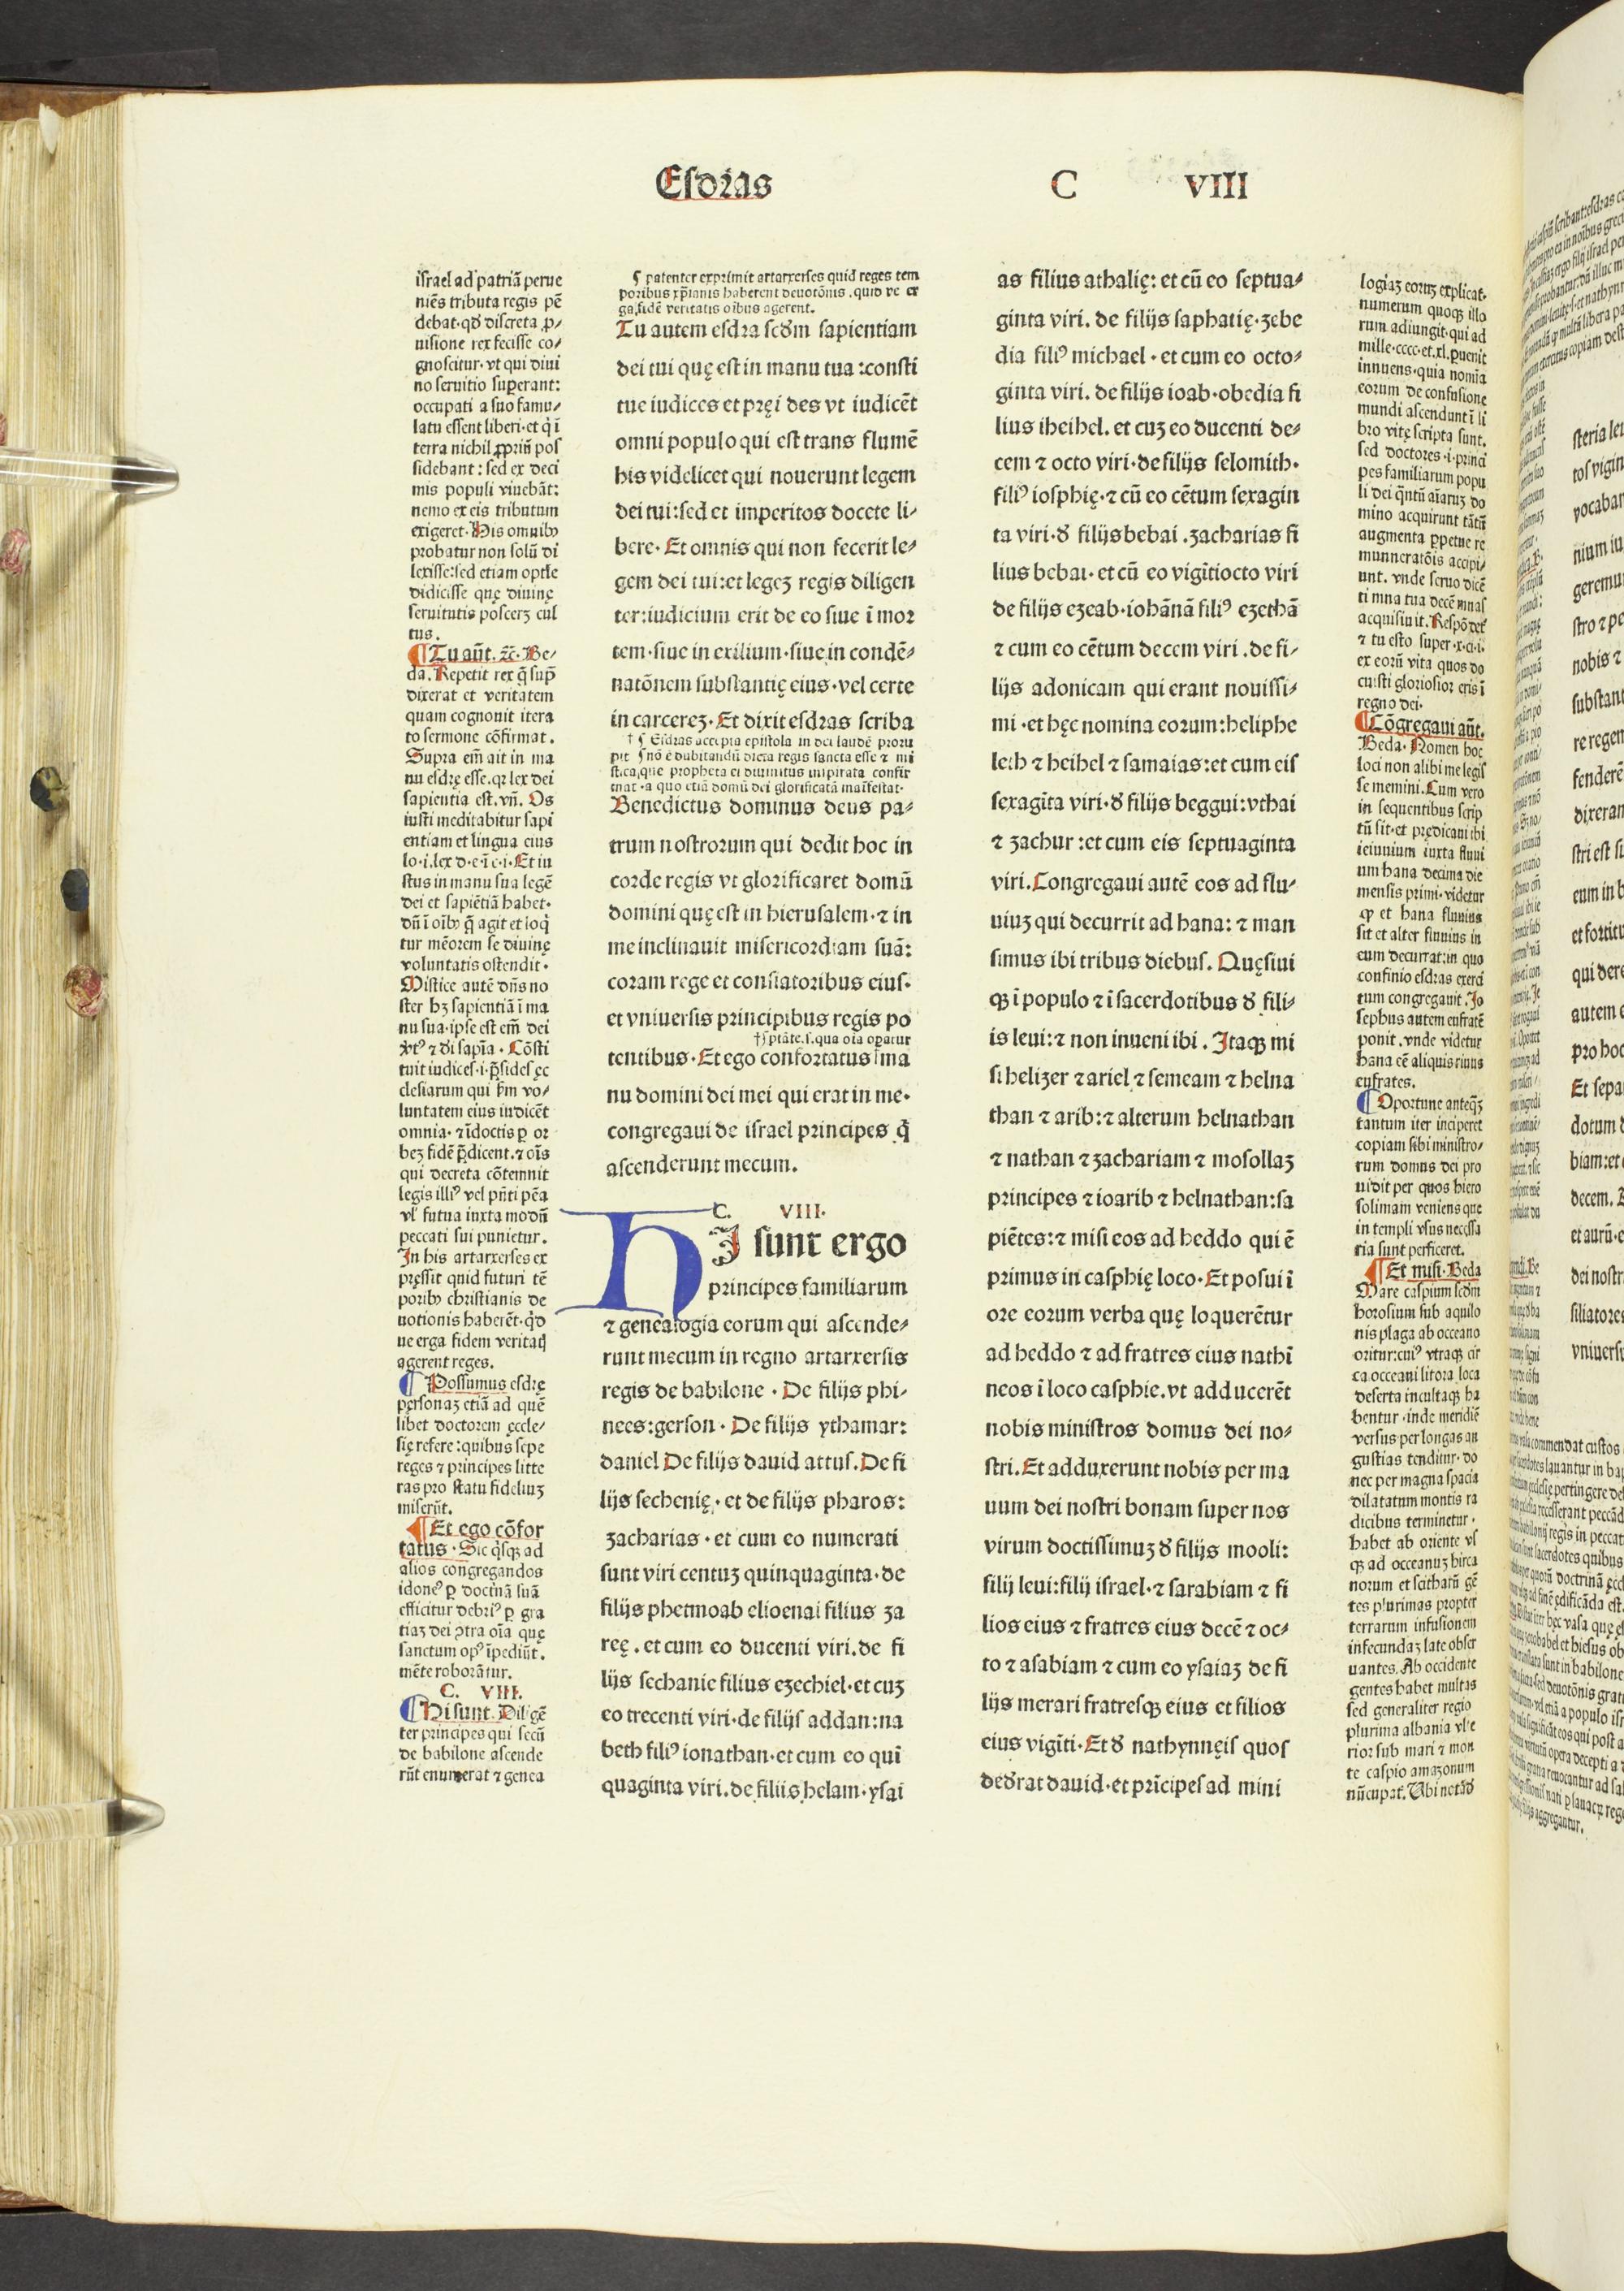 Esdras C VIII
israel ad patriã perue
niẽs tributa regis pẽ
debat·qđ discreta ꝓ/
uisione rex fecisse co/
gnoscitur·vt qui diui
no seruitio superant:
occupati a suo famu/
latu essent liberi·et q̇ ĩ
terra nichil ꝓpriũ pos
sidebant: sed ex deci
mis populi viuebãt:
nemo ex eis tributum
exigeret·His omnibꝰ
probatur non solũ di
lexisse:sed etiam optĩe
didicisse quę diuinę
seruitutis posceret cul
tus.
¶Tu aũt.⁊c̃·Be/
da.Repetit rex q̃ sup̃
dixerat et veritatem
quam cognouit itera
to sermone cõfirmat.
Supra em̃ ait in ma
nu esdrę esse.qꝛ lex dei
sapientia est.vñ. Os
iusti meditabitur sapi
entiam et lingua eius
lo·i.lex d·e·ĩ c·i·Et iu
stus in manu sua legẽ
dei et sapiẽtiã habet·
dñ ĩ oĩbꝰ q̃ agit et loq̇
tur mẽorem se diuinę
voluntatis ostendit·
Mistice autẽ dñs no
ster hꝫ sapientiã ĩ ma
nu sua·ipse est em̃ dei
xp̃tꝰ ⁊ đi sap̃ia·Cõsti
tuit iudices·i·p̃sides ęc
clesiarum qui s̃m vo/
luntatem eius iudicẽt
omnia·⁊ ĩdoctis ꝑ or
beꝫ fidẽ p̃dicent.⁊ oĩs
qui decreta cõtemnit
legis illiꝰ vel pñti pẽa
vl̃ futura iuxta modũ
peccati sui punietur.
In his artarxerses ex
pręssit quid futuri tẽ
poribꝰ christianis de
uotionis haberẽt·q̇d
ue erga fidem veritatꝭ
agerent reges.
¶Possumus esdrę
personaꝫ etiã ad quẽ
libet doctorem ęccle/
się refere:quibus sepe
reges ⁊ principes litte
ras pro statu fideliuꝫ
miserũt.
¶Et ego cõfor
tatus·Sic q̇sqꝫ ad
alios congregandos
idoneꝰ ꝑ doctrinã suã
efficitur debriꝰ ꝑ gra
tiaꝫ dei ↄtra oĩa quę
sanctum opꝰ ĩpediũt.
mẽte roborãtur.
C. VIII.
¶Hi sunt.Diligẽ
ter principes qui secũ
de babilone ascende
rũt enumerat ⁊ genea
¶ patenter exprimit artarxerses quid reges tem
poribus xp̃ianis haberent deuotõnis.quid ve er
ga fidẽ veritatis oĩbus agerent.
Tu autem esdra scđm sapientiam
dei tui quę est in manu tua:consti
tue iudices et pręsi des vt iudicẽt
omni populo qui est trans flumẽ
his videlicet qui nouerunt legem
dei tui:sed et imperitos docete li/
bere·Et omnis qui non fecerit le/
gem dei tui:et legeꝫ regis diligen
ter:iudicium erit de eo siue ĩ mor
tem·siue in exilium·siue in condẽ/
natõnem substantię eius·vel certe
in carcereꝫ·Et dixit esdras scriba
† ¶ Esdras accepta epistola in dei laudẽ proru
pit ¶ nõ ẽ dubitandũ dicta regis sancta esse ⁊ mi
stica,que propheta ei diuinitus inspirata confir
mat·a quo etiã domũ dei glorificatã maĩfestat·
Benedictus dominus deus pa/
trum nostrorum qui dedit hoc in
corde regis vt glorificaret domũ
domini quę est in hierusalem·⁊ in
me inclinauit misericordiam suã:
coram rege et consiliatoribus eius·
et vniuersis principibus regis po
†¶ p̃tãte.s.qua oĩa opatur
tentibus·Et ego confortatus ma
nu domini dei mei qui erat in me·
congregaui de israel principes q̇
ascenderunt mecum.
C. VIII.
HI sunt ergo
principes familiarum
⁊ genealogia eorum qui ascende/
runt mecum in regno artarxersis
regis de babilone·De filijs phi/
nees:gerson·De filijs ythamar:
daniel De filijs dauid attus.De fi
lijs sechenię·et de filijs pharos:
zacharias·et cum eo numerati
sunt viri centuꝫ quinquaginta·de
filijs phetmoab elioenai filius za
reę.et cum eo ducenti viri.de fi
lijs sechanie filius ezechiel·et cuꝫ
eo trecenti viri·de filijs addan:na
beth filiꝰ ionathan·et cum eo quĩ
quaginta viri.de filiis helam·ysai
as filius athalię: et cũ eo septua/
ginta viri. de filijs saphatię·zebe
dia filiꝰ michael·et cum eo octo/
ginta viri. de filijs ioab·obedia fi
lius iheihel. et cuꝫ eo ducenti de/
cem ⁊ octo viri·de filijs selomith·
filiꝰ iosphię·⁊ cũ eo cẽtum sexagin
ta viri·đ filijs bebai.zacharias fi
lius bebai·et cũ eo vigĩtiocto viri
de filijs ezeab·iohãnã filiꝰ ezethã
⁊ cum eo cẽtum decem viri.de fi/
lijs adonicam qui erant nouissi/
mi·et hęc nomina eorum:heliphe
leth ⁊ heihel ⁊ samaias:et cum eis
sexagĩta viri·đ filijs beggui:vthai
⁊ zachur:et cum eis septuaginta
viri.Congregaui autẽ eos ad flu/
uiuꝫ qui decurrit ad hana: ⁊ man
simus ibi tribus diebus. Quęsiui
qꝫ ĩ populo ⁊ ĩ sacerdotibus đ fili/
is leui:⁊ non inueni ibi.Itaqꝫ mi
si helizer ⁊ ariel ⁊ semeam ⁊ helna
than ⁊ arib:⁊ alterum helnathan
⁊ nathan ⁊ zachariam ⁊ mosollaꝫ
principes ⁊ ioarib ⁊ helnathan:sa
piẽtes:⁊ misi eos ad heddo qui ẽ
primus in casphię loco·Et posui ĩ
ore eorum verba quę loquerẽtur
ad heddo ⁊ ad fratres eius nathĩ
neos ĩ loco casphie.vt adducerẽt
nobis ministros domus dei no/
stri.Et adduxerunt nobis per ma
num dei nostri bonam super nos
virum doctissimuꝫ đ filijs mooli:
filij leui:filij israel·⁊ sarabiam ⁊ fi
lios eius ⁊ fratres eius decẽ ⁊ oc/
to ⁊ asabiam ⁊ cum eo ysaiaꝫ de fi
lijs merari fratresqꝫ eius et filios
eius vigĩti·Et đ nathynnęis quos
deđrat dauid·et prĩcipes ad mini
logiaꝫ eoruꝫ explicat·
numerum quoqꝫ illo
rum adiungit·qui ad
mille·cccc·et.xl.puenit
innuens·quia nomĩa
eorum de confusione
mundi ascendunt ĩ li
bro vitę scripta sunt.
sed doctores·i·princi
pes familiarum popu
li dei q̃ntũ aĩaruꝫ do
mino acquirunt tãtũ
augmenta ꝑpetue re
munneratõis accipi/
unt. vnde seruo dicẽ
ti mna tua decẽ mnas
acquisiuit.Respõdet̃
⁊ tu esto super·x·ci·i·
ex eorũ vita quos do
cuisti gloriosior eris ĩ
regno dei·
¶Cõgregaui aũt.
Beda·Nomen hoc
loci non alibi me legis
se memini.Cum vero
in sequentibus scrip
tũ sit·et prędicaui ibi
ieiunium iuxta fluui
um hana decima die
mensis primi·videtur
ꝙ et hana fluuius
sit et alter fluuius in
eum decurrat:in quo
confinio esdras exerci
tum congregauit.Jo
sephus autem eufratẽ
ponit.vnde videtur
hana eẽ aliquis riuus
eufrates.
¶Oportune anteqꝫ
tantum iter inciperet
copiam sibi ministro/
rum domus dei pro
uidit per quos hiero
solimam veniens que
in templi vsus necessa
ria sunt perficeret.
¶Et misi·Beda
Mare caspium scđm
horosium sub aquilo
nis plaga ab occeano
oritur:cuiꝰ vtraqꝫ cir
ca occeani litora loca
deserta incultaqꝫ ha
bentur·inde meridiẽ
versus per longas an
gustias tenditur·do
nec per magna spacia
dilatatum montis ra
dicibus terminetur·
habet ab oriente vs
qꝫ ad occeanuꝫ hirca
norum et scitharũ gẽ
tes plurimas propter
terrarum infusionem
infecundaꝫ late obser
uantes.Ab occidente
gentes habet multas
sed generaliter regio
plurima albania vl̃ e
rior sub mari ⁊ mon
te caspio amazonum
nũcupat̃.Ubi notãđ